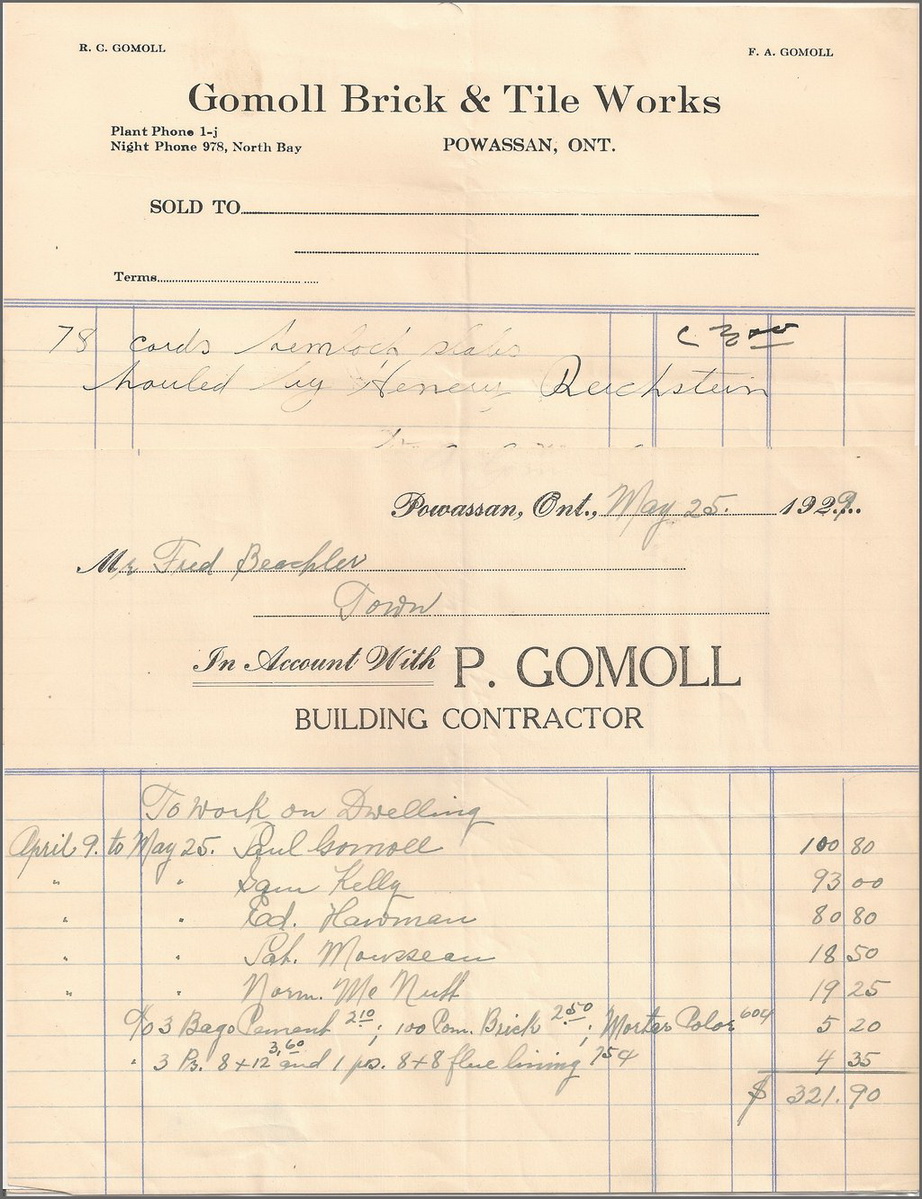 R. C. GOMOLL
F. A. GOMOLL
Gomoll Brick & Tile Works
Plant Phone 1-j
Night Phone 978, North Bay
POWASSAN, ONT.
SOLD TO
Terms
78 cords hemlock slabs @ 3.00
houled by Henery Reichstein
Powassan, Ont., May 25. 1929.
Mr Fred Beachler
Town
In Account With P. GOMOLL
BUILDING CONTRACTOR
To Work on Dwelling
April 9. to May 25. Paul Gomoll 100 80
" " Sam Kelly 93 00
" " Ed. Hawman 80 80
" " Pat. Mousseau 18 50
" " Norm. Mc Nutt 19 25
To 3 Bags Cement 2.10; 100 Com. Brick 2.50; Morter Color 60¢ 5 20
" 3 Ps. 8+12 3.60 and 1 ps. 8+8 flue lining 75¢ 4 35
$ 321.90